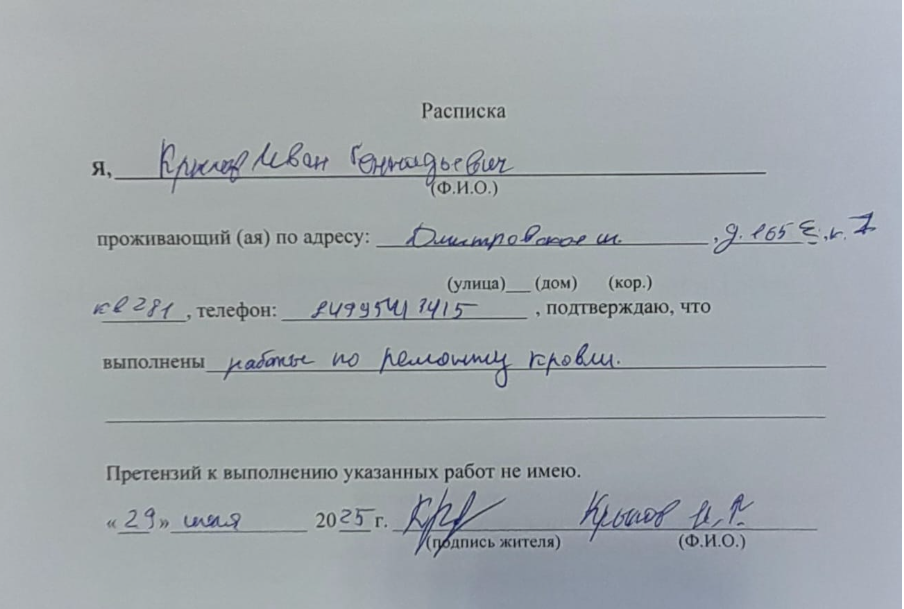 Расписка
Я, Крылов Иван Геннадьевич
(Ф.И.О.)
проживающий (ая) по адресу: Дмитровское ш. , д. 165 Е, к. 7
(улица)___ (дом) (кор.)
кв 281, телефон: 84995413415 , подтверждаю, что
выполнены работы по ремонту кровли.
Претензий к выполнению указанных работ не имею.
«29» июля 2025 г. Крылов И.Г.
(подпись жителя) (Ф.И.О.)